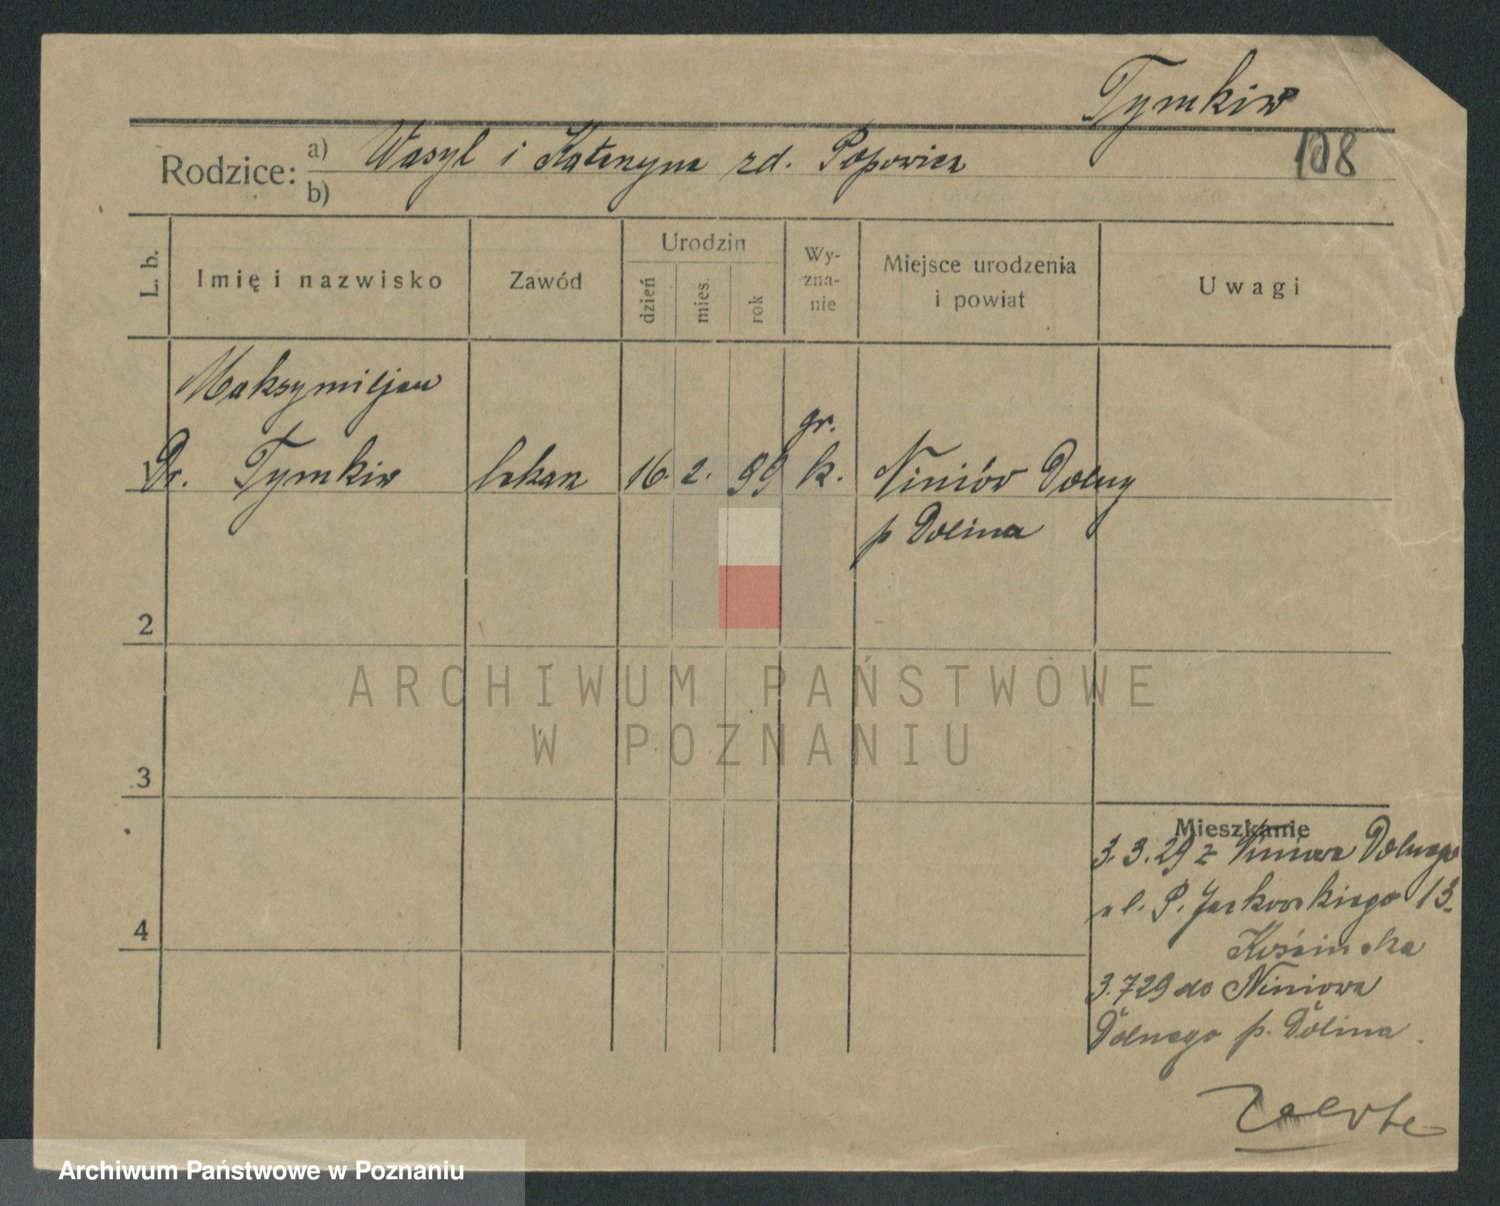 Tymkiw
108
Rodzice: a) Wasyl i Kateryna zd. Popowicz
b)
L. b.
Imię i nazwisko
Zawód
Urodzin
dzień
mies.
rok
Wy-
zna-
nie
Miejsce urodzenia
i powiat
Uwagi
Maksymiljan
Dr. Tymkiw lekarz 16. 2. 99 gr. k. Niniów Dolny
p Dolina
2
3
4
Mieszkanie
3.3.29 z Niniowa Dolnego
ul. P. Jackowskiego 13.
3.729 do Niniowa
Dolnego p. Dolina.
ARCHIWUM PAŃSTWOWE
W POZNANIU
Archiwum Państwowe w Poznaniu